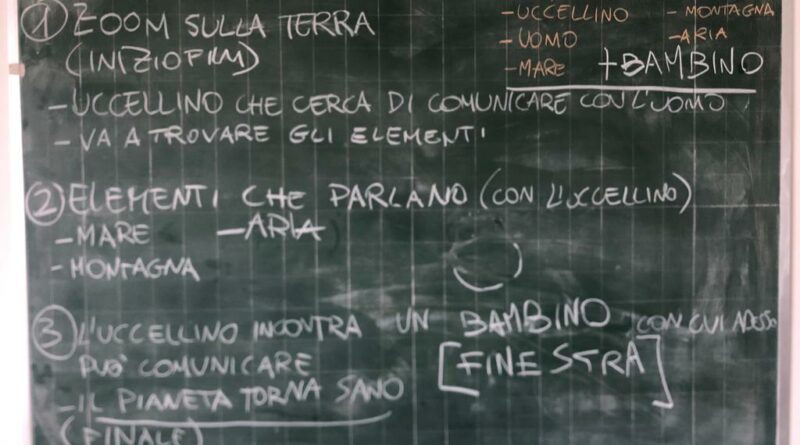 ① ZOOM SULLA TERRA
(INIZIO FILM)
- UCCELLINO - MONTAGNA
- UOMO - ARIA
- MARE + BAMBINO
- UCCELLINO CHE CERCA DI COMUNICARE CON L'UOMO
- VA A TROVARE GLI ELEMENTI
② ELEMENTI CHE PARLANO (CON L'UCCELLINO)
- MARE - ARIA
- MONTAGNA
③ L'UCCELLINO INCONTRA UN BAMBINO CON CUI ADESSO
PUÒ COMUNICARE [FINESTRA]
- IL PIANETA TORNA SANO
(FINALE)